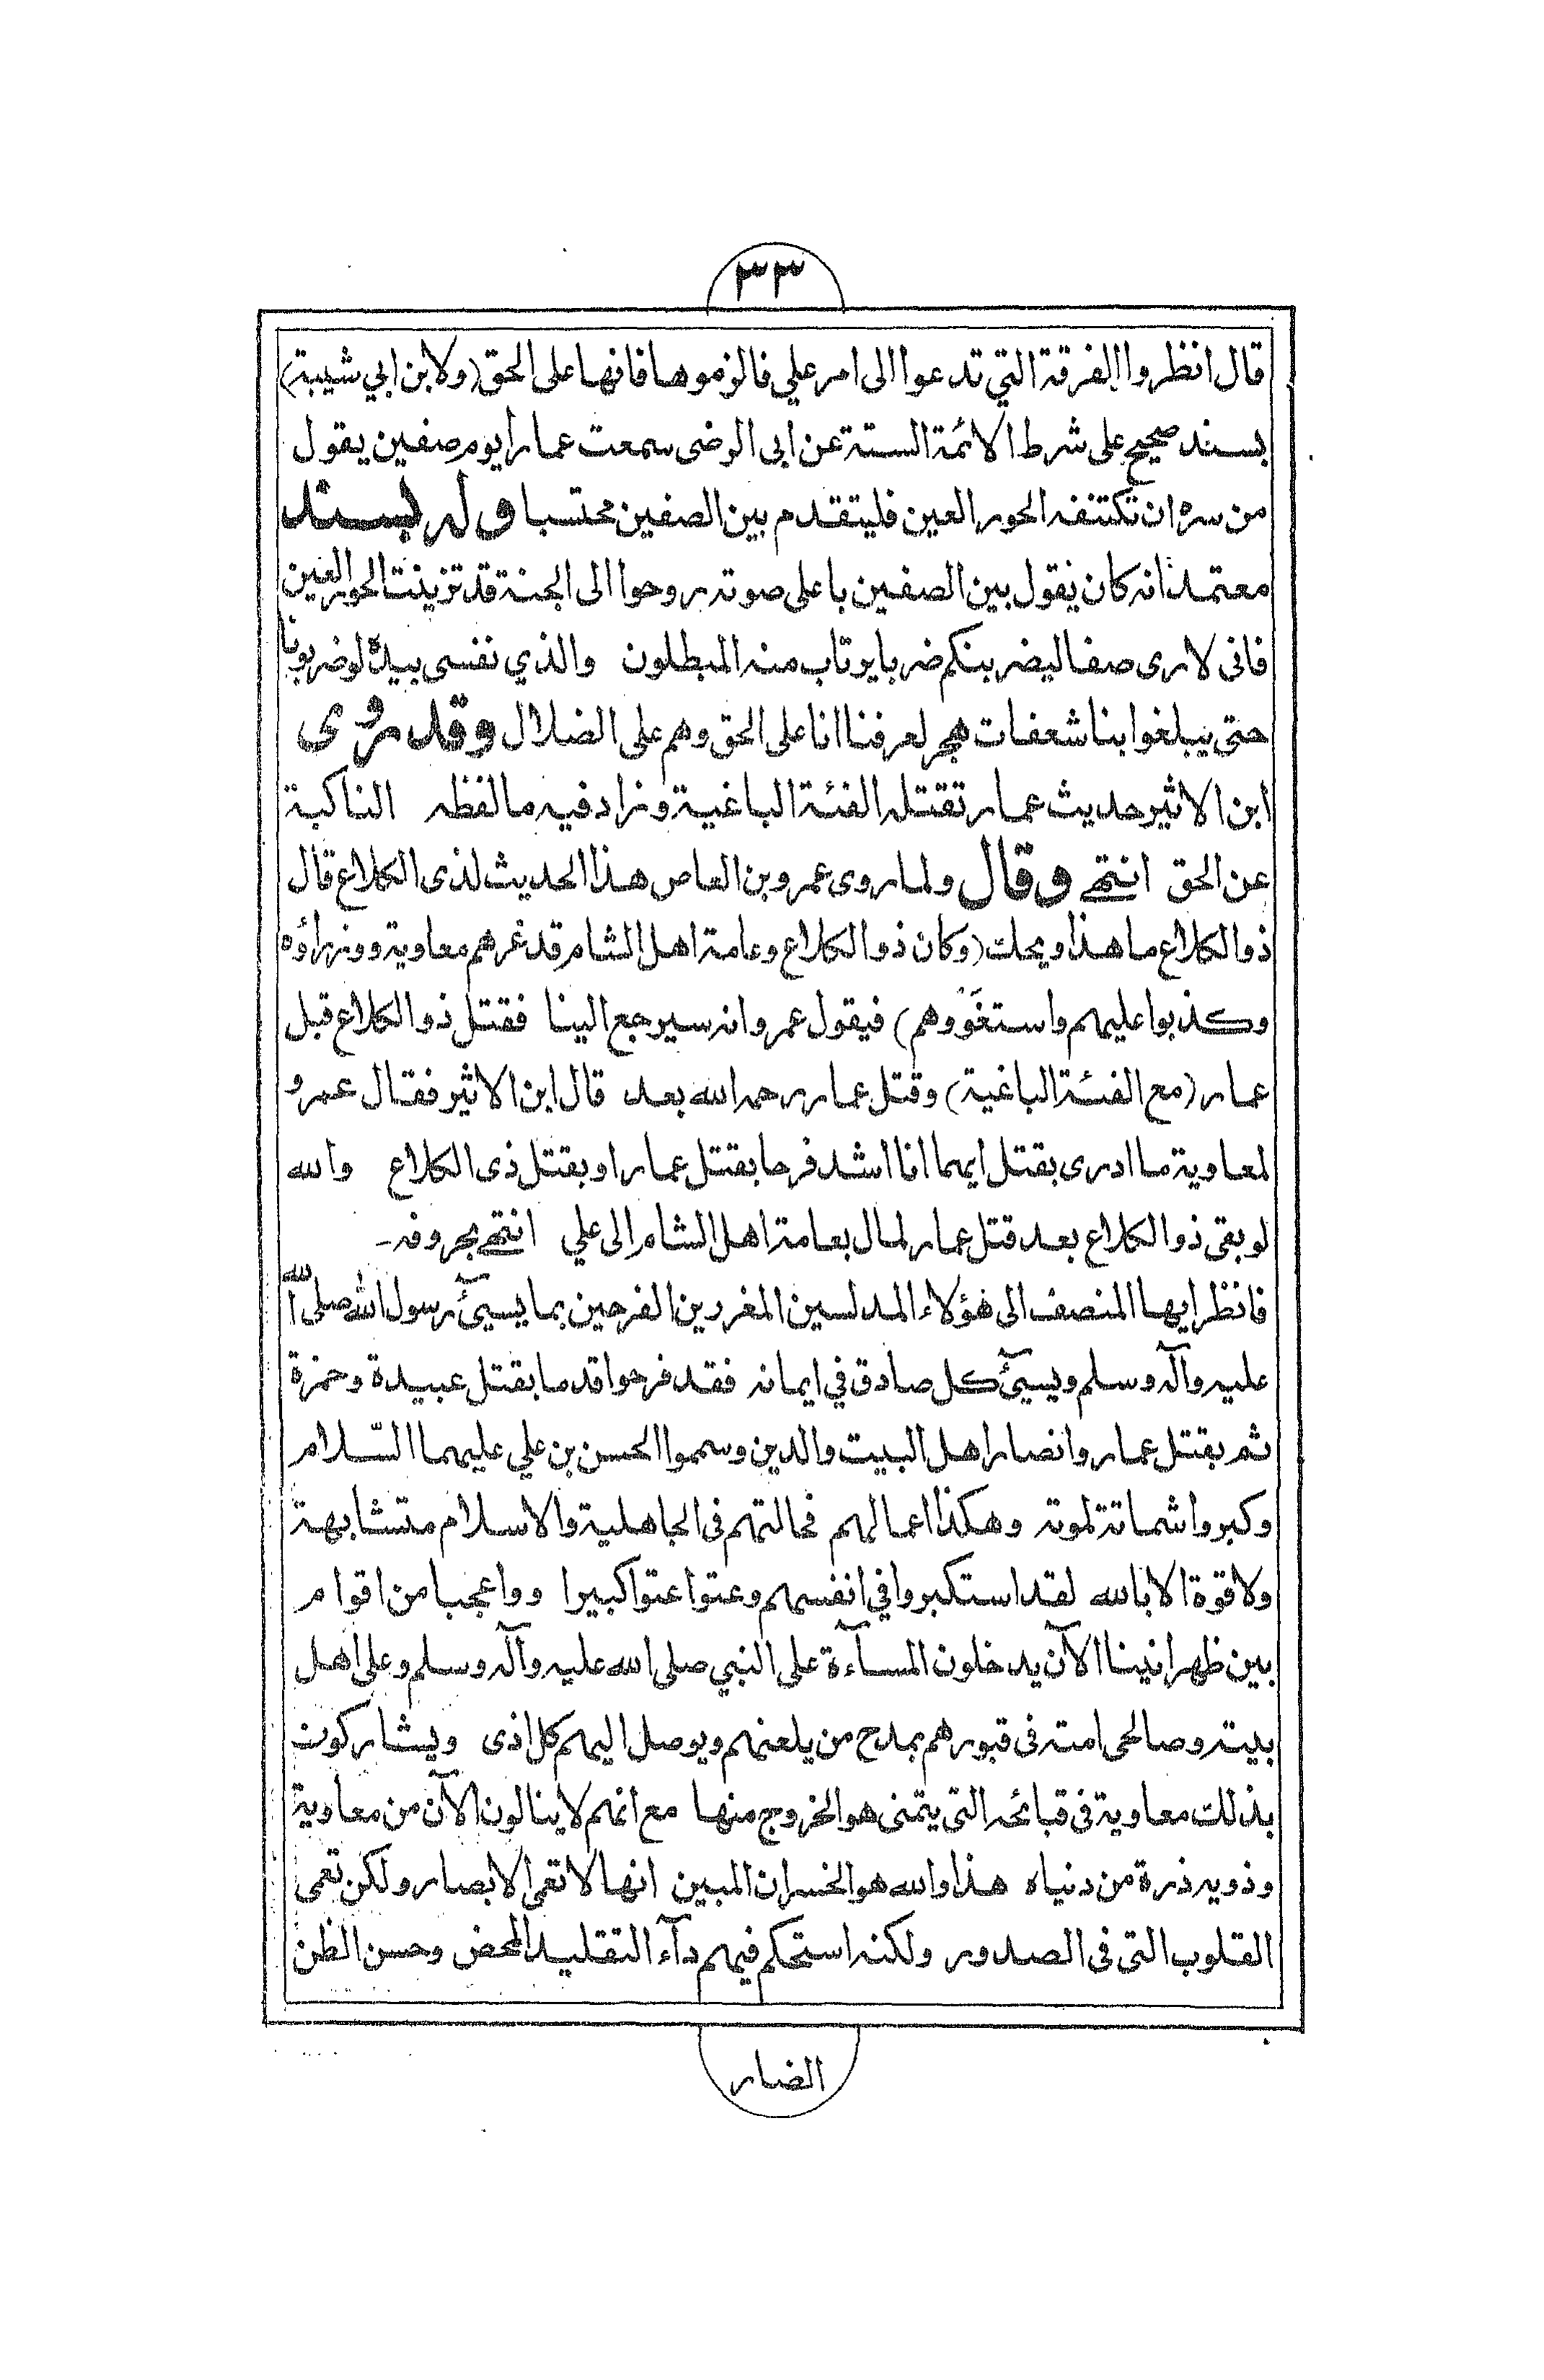 ٣٣
قال انظروا الفرقة التي تدعوا الى امر علي فالزموها فانها على الحق (ولابن ابي شيبة)
بسند صحيح على شرط الائمة الستة عن ابى الرضى سمعت عمارا يوم صفين يقول
من سره ان تكتنفه الحور العين فليتقدم بين الصفين محتسبا وله بسند
معتمد انه كان يقول بين الصفين باعلى صوته روحوا الى الجنة قد تزينت الحور العين
فانى لارى صفا ليضربنكم ضربا يرتاب منه المبطلون والذي نفسى بيده لو ضربونا
حتى يبلغوا بنا شعفات هجر لعرفنا انا على الحق وهم على الضلال وقد روى
ابن الاثير حديث عمار تقتله الفئة الباغية وزاد فيه ما لفظه الناكبة
عن الحق انتهى وقال ولما روى عمرو بن العاص هذا الحديث لذى الكلاع قال
ذو الكلاع ما هذا ويحك (وكان ذو الكلاع وعامة اهل الشام قد غرهم معاوية ووزراؤه
وكذبوا عليهم واستغووهم) فيقول عمرو انه سيرجع الينا فقتل ذو الكلاع قبل
عمار (مع الفئة الباغية) وقتل عمار رحمه الله بعد قال ابن الاثير فقال عمرو
لمعاوية ما ادرى بقتل ايهما انا اشد فرحا بقتل عمار او بقتل ذى الكلاع والله
لو بقى ذو الكلاع بعد قتل عمار لمال بعامة اهل الشام الى علي انتهى بحروفه-
فانظر ايها المنصف الى هؤلاء المدلسين المغررين الفرحين بما يسيئ رسول الله صلى الله
عليه وآله وسلم ويسيئ كل صادق في ايمانه فقد فرحوا قدما بقتل عبيدة وحمزة
ثم بقتل عمار وانصار اهل البيت والدين وسموا الحسن بن علي عليهما السّلام
وكبروا شماتة لموته وهكذا اعمالهم فحالتهم فى الجاهلية والاسلام متشابهة
ولا قوة الا بالله لقد استكبروا في انفسهم وعتوا عتوا كبيرا وواعجبا من اقوام
بين ظهرانينا الآن يدخلون المسآءة على النبي صلى الله عليه وآله وسلم وعلى اهل
بيته وصالحى امته فى قبورهم بمدح من يلعنهم ويوصل اليهم كل اذى ويشاركون
بذلك معاوية فى قبائحه التى يتمنى هو الخروج منها مع انهم لا ينالون الآن من معاوية
وذويه ذرة من دنياه هذا والله هو الخسران المبين انها لا تعمى الابصار ولكن تعمى
القلوب التى فى الصدور ولكنه استحكم فيهم دآء التقليد المحض وحسن الظن
الضار